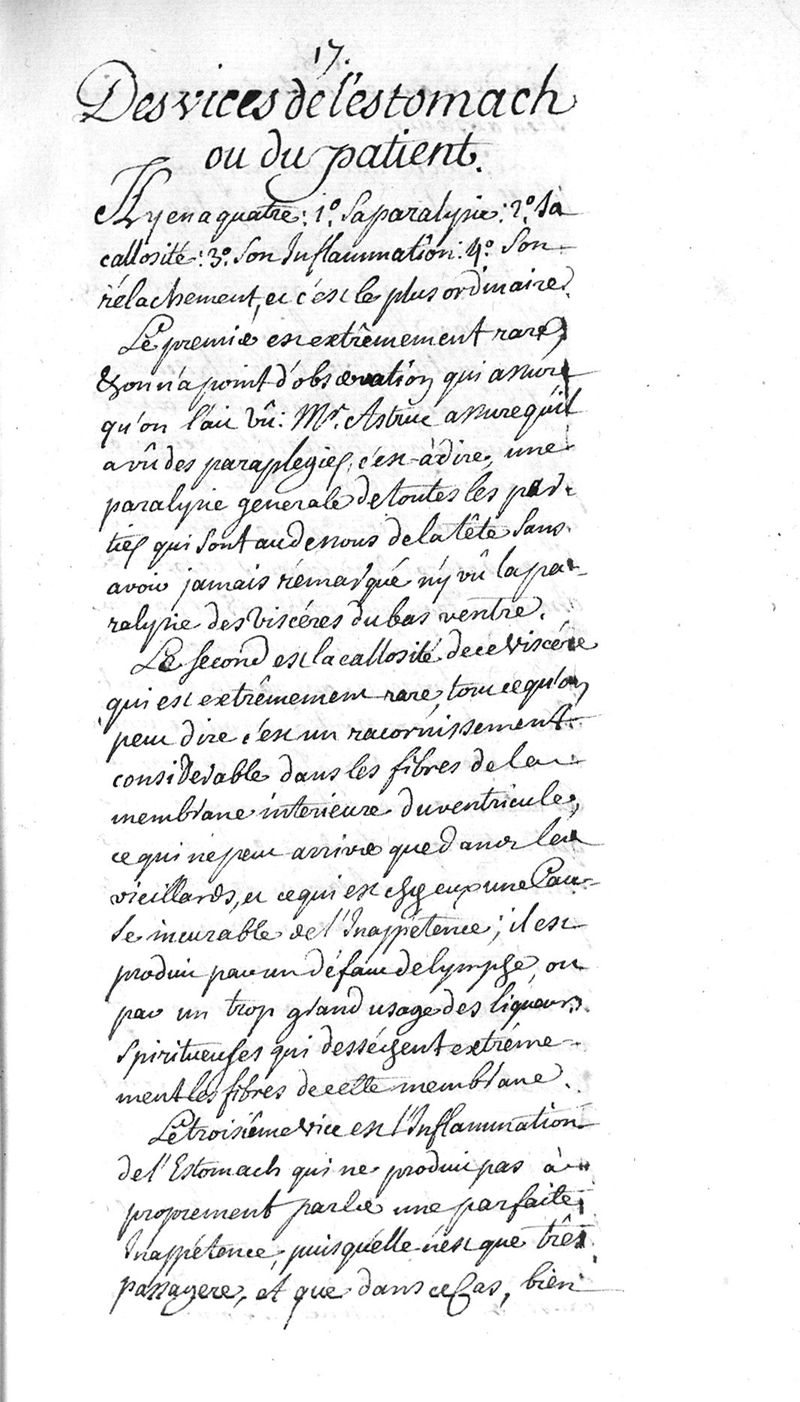 17.
Des vices de l'estomach
ou du patient.
Il y en a quatre: 1º. Sa paralysie: 2º. Sa
callosité: 3º. Son Inflammation: 4º. Son
rélachement, et c'est le plus ordinaire.
Le premié est extrêmement rare,
& on n'a point d'observation qui assure
qu'on l'ait vû: Mr. Astruc assure qu'il
a vû des paraplegies, c'est-à-dire, une
paralysie generale de toutes les par-
ties qui sont au dessous de la tête sans
avoir jamais rémarqué n'y vû la pa-
ralysie des viscéres du bas ventre.
Le second est la callosité de ce viscére
qui est extrêmement rare, tout ce qu'on
peut dire c'est un racornissement
considerable dans les fibres de la
membrane interieure du ventricule,
ce qui ne peut arriver que dans les
vieillards, et ce qui est chez eux une Cau-
se incurable de l'Inappétence; il est
produit par un défaut de lymphe, ou
par un trop grand usage des liqueurs
spiritueuses qui desséchent extréme-
ment les fibres de cette membrane.
Le troisiême vice est l'Inflammation
de l'Estomach qui ne produit pas à
proprement parler une parfaite
Inappétence, puisqu'elle n'est que très
passagere, et que dans ce Cas, bien